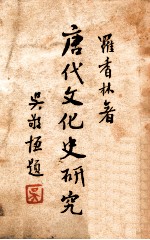 羅香林著
唐代文化史研究
吴敬恆題
吴